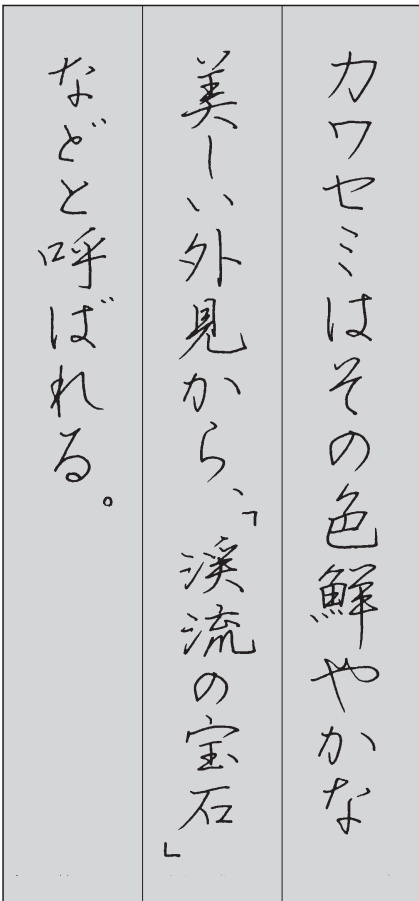 カワセミはその色鮮やかな
美しい外見から、「渓流の宝石」
などと呼ばれる。